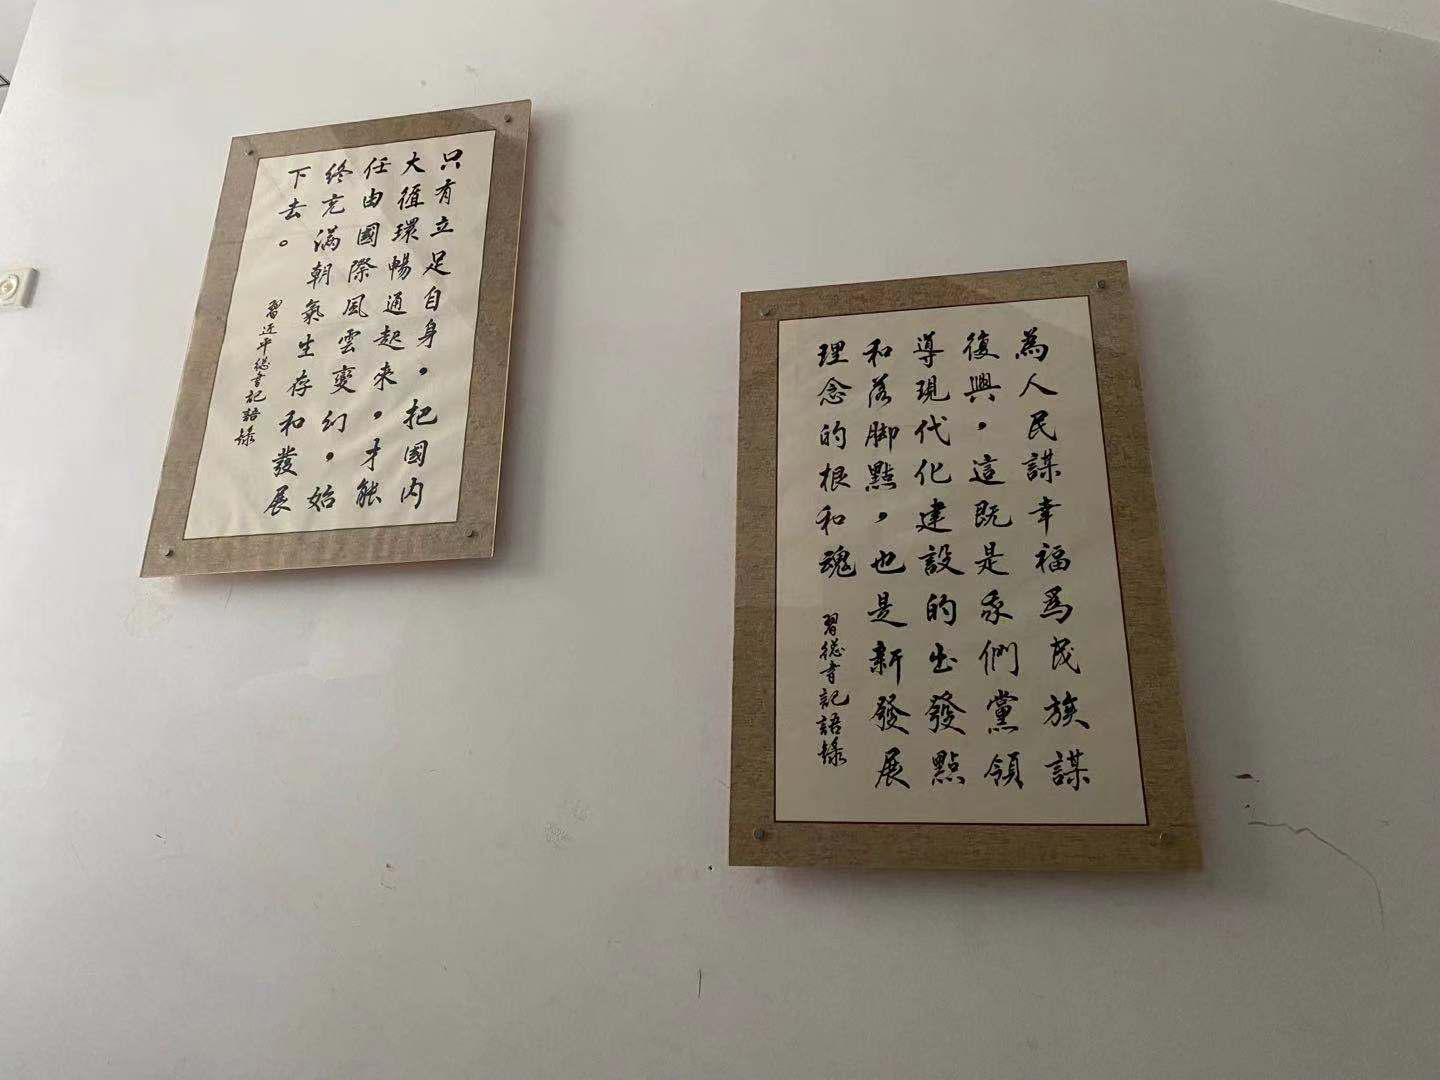 只有立足自身，把國内
大循環暢通起来，才能
任由國際風雲變幻，始
终充满朝氣生存和發展
下去。
習近平總書記語錄
為人民謀幸福爲民族謀
復興，這既是我們黨領
導現代化建設的出發點
和落脚點，也是新發展
理念的根和魂
習總書記語錄